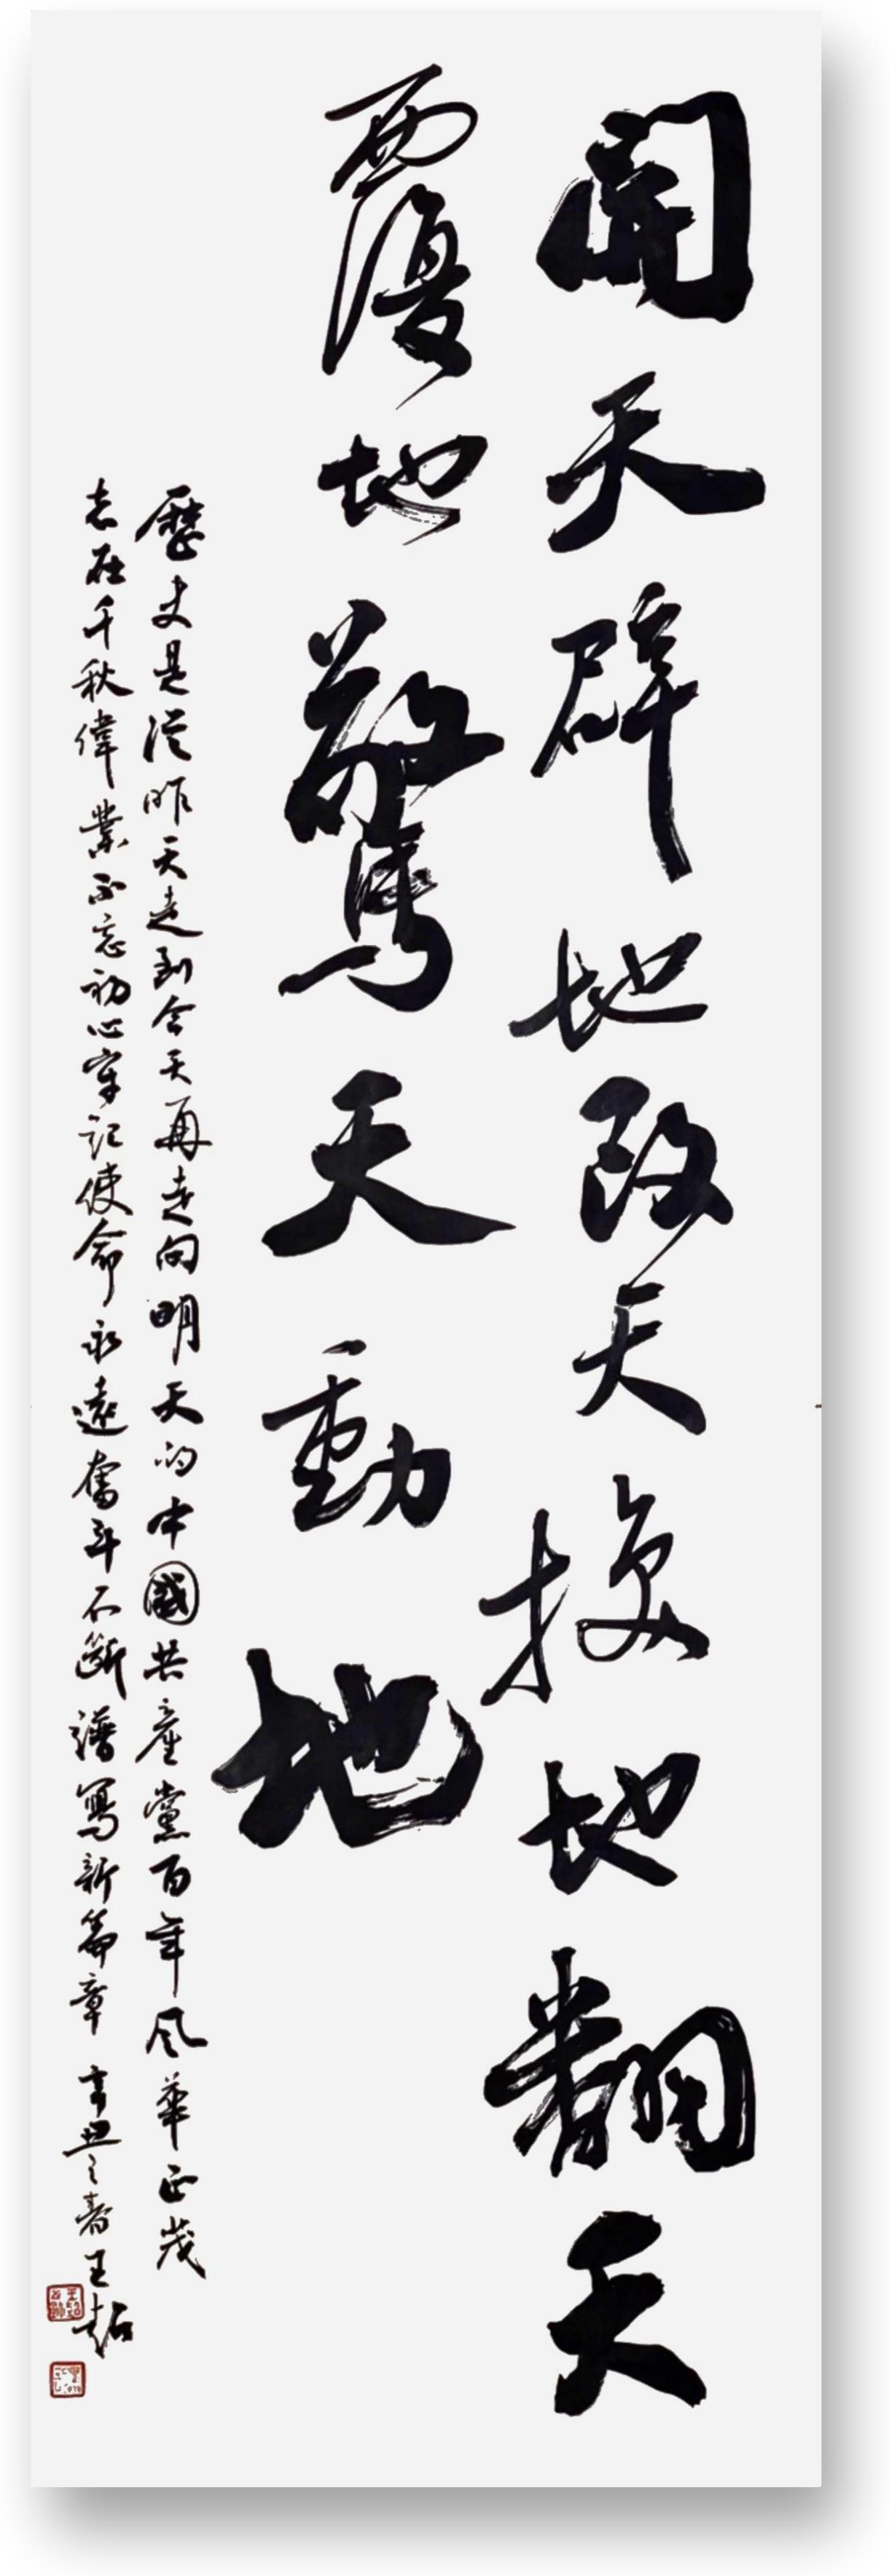 開天辟地改天換地翻天
覆地驚天動地
歷史是從昨天走到今天再走向明天的中國共產黨百年風華正茂
志在千秋偉業不忘初心牢記使命永遠奮斗不斷譜寫新篇章 辛丑之春王超